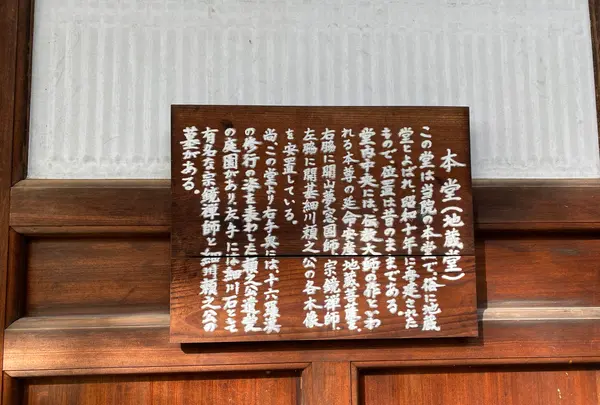 本堂(地蔵堂)
この堂は当院の本堂で、俗に地蔵
堂とよばれ、昭和十年に再建された
もので、位置は昔のままである。
堂内中央には、伝教大師の作といわ
れる本尊の延命安産地蔵菩薩を、
右脇に開山夢窓国師、宗鏡禅師、
左脇に開基細川頼之公の各木像
を安置している。
尚、この堂より右手奥には、十六羅漢
の修行の姿を表わした頼之公遺愛
の庭園があり、左手には細川石とも
有名な宗鏡禅師と細川頼之公の
墓がある。